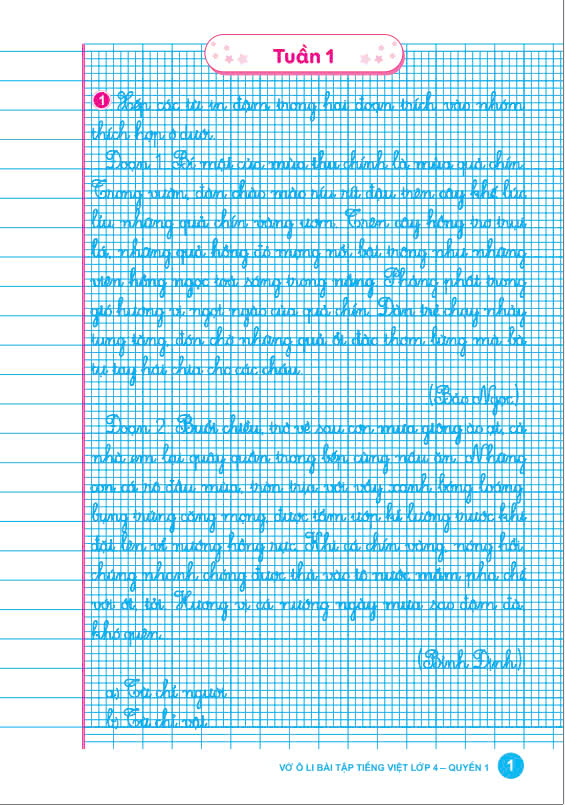 Tuần 1
1 Xếp các từ in đậm trong hai đoạn trích vào nhóm
thích hợp ở dưới.
Đoạn 1: Bí mật của mùa thu chính là mùa quả chín.
Trong vườn, đàn chào mào ríu rít đậu trên cây khế lúc
lỉu những quả chín vàng ươm. Trên cây hồng trơ trụi
lá, những quả hồng đỏ mọng nổi bật trông như những
viên hồng ngọc toả sáng trong nắng. Phảng phất trong
gió hương vị ngọt ngào của quả chín. Đàn trẻ chạy nhảy
tung tăng, đón chờ những quả ổi đào thơm lừng mà bà
tự tay hái chia cho các cháu.
(Bảo Ngọc)
Đoạn 2: Buổi chiều, trở về sau cơn mưa giông ào ạt, cả
nhà em lại quây quần trong bếp cùng nấu ăn. Những
con cá rô đầu mùa, tròn trịa với vảy xanh bóng loáng,
bụng trứng căng mọng, được tẩm ướp kĩ lưỡng trước khi
đặt lên vỉ nướng hồng rực. Khi cá chín vàng, nóng hổi,
chúng nhanh chóng được thả vào tô nước mắm pha chế
với ớt, tỏi. Hương vị cá nướng ngày mưa sao đậm đà,
khó quên.
(Bình Định)
a) Từ chỉ người
b) Từ chỉ vật
VỞ Ô LI BÀI TẬP TIẾNG VIỆT LỚP 4 – QUYỂN 1
1